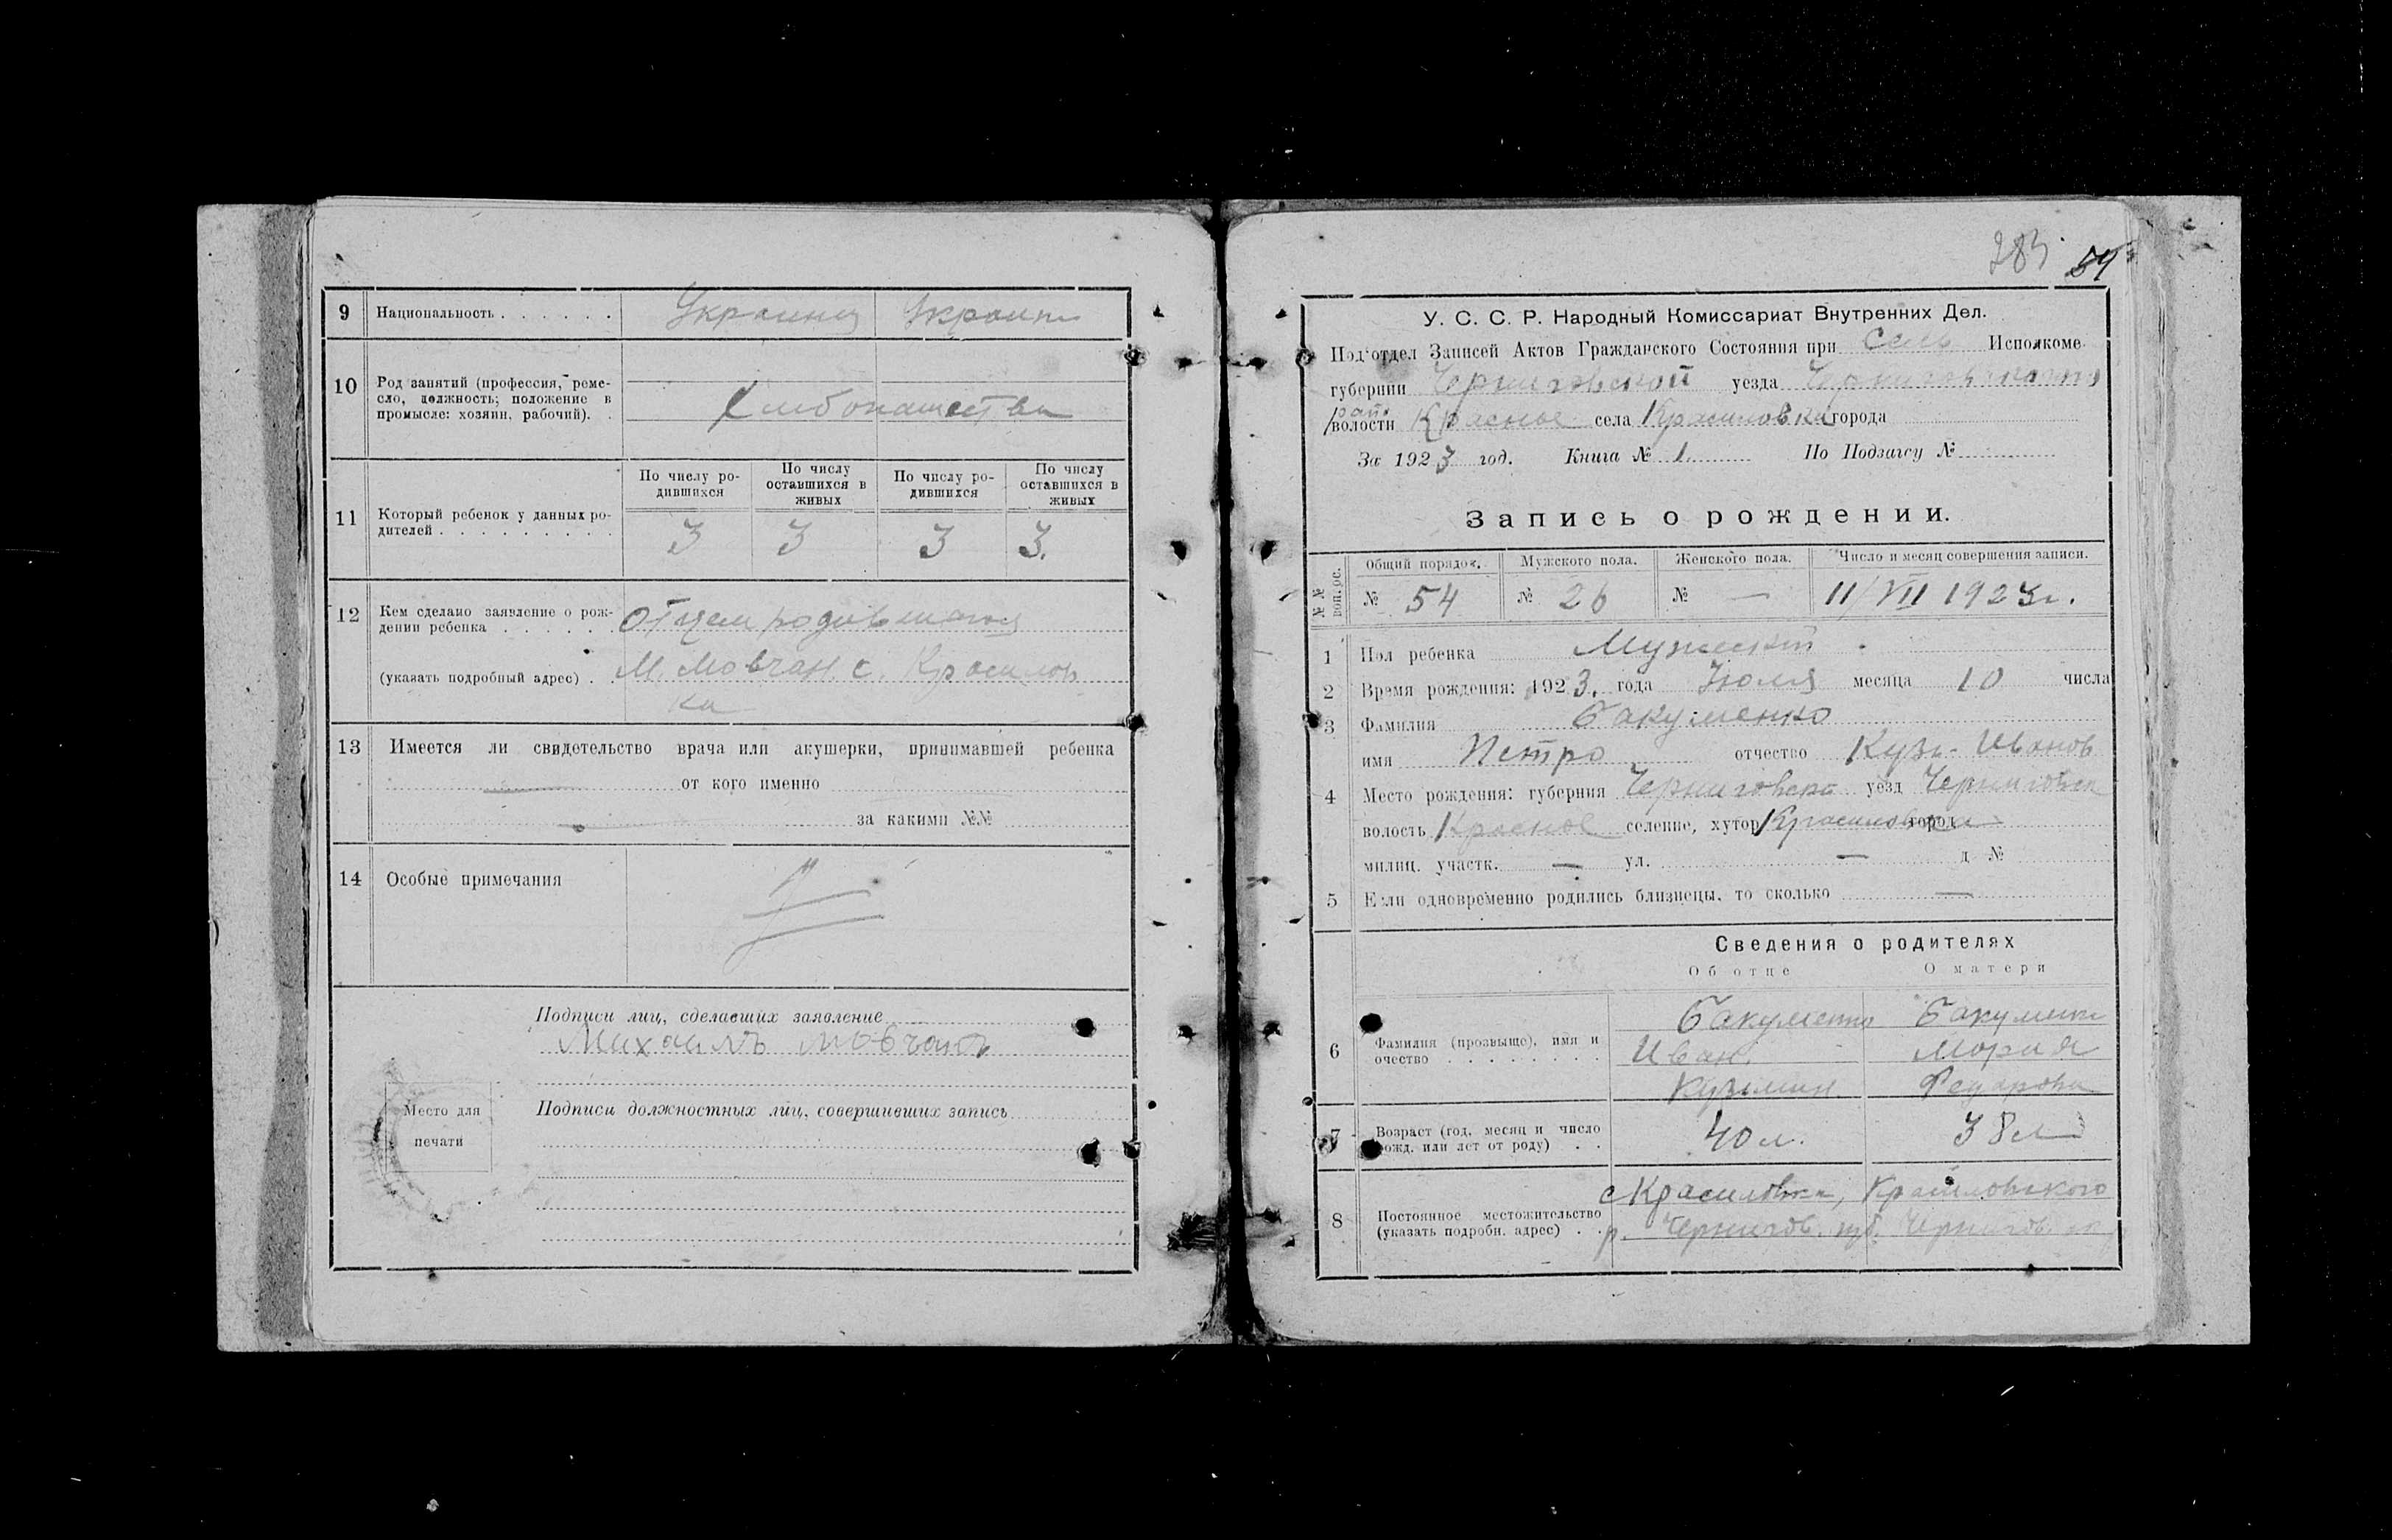 9 Национальность . . . . . . Украинец Украин
10 Род занятий (профессия, реме-
сло, должность; положение в
промысле: хозяин, рабочий). . Хлибопашество
По числу ро-
дившихся
По числу
оставшихся в
живых
По числу ро-
дившихся
По числу
оставшихся в
живых
11 Который ребенок у данных ро-
дителей . . . . . . . . . 3 3 3 3.
12 Кем сделано заявление о рож-
дении ребенка . . . . . . Отцем
(указать подробный адрес) . . М. Мовчан. с. Красилов
ка
13 Имеется ли свидетельство врача или акушерки, принимавшей ребенка
от кого именно
за какими №№
14 Особые примечания
Подписи лиц, сделавших заявление
Михаилъ Мовчанъ
Подписи должностных лиц, совершивших запись
Место для
печати
283 54
У. С. С. Р. Народный Комиссариат Внутренних Дел.
Под'отдел Записей Актов Гражданского Состояния при Сель Исполкоме
губернии Черниговской уезда Черниговского
рай
волости Красное села Красиловка города
За 1923 год. Книга № 1 По Подзагсу №
Запись о рождении.
№№ воп.рос. Общий порядок. Мужского пола. Женского пола. Число и месяц совершения записи.
№ 54 № 26 № — 11/VII 1923г.
1 Пол ребенка Мужский
2 Время рождения: 1923. года Июля месяца 10 числа
3 Фамилия Бакуменко
имя Петро отчество Кузь- Иванов
4 Место рождения: губерния Черниговска уезд Черниговск
волость Красное селение, хутор Красиловка город
милиц. участк. — ул. — д №
5 Если одновременно родились близнецы, то сколько —
Сведения о родителях
Об отце О матери
Бакуменко Бакуменк
6 Фамилия (прозвище), имя и
очество . . . . . . . . Иван. Мория
Кузьмин. Федорова
7 Возраст (год, месяц и число
рожд. или лет от роду) . . 40 л. 38 л
с Красиловка, Красиловского
8 Постоянное местожительство
(указать подробн. адрес) . . р. Чернигов. губ. Чернигов